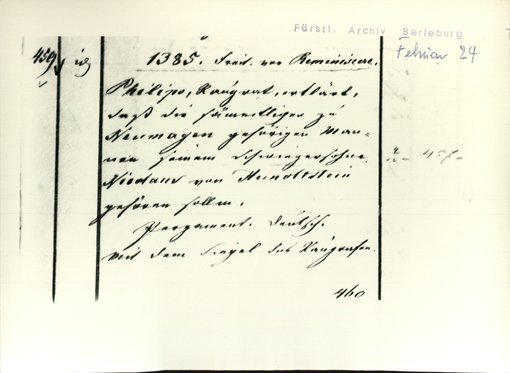 Fürstl. Archiv Berleburg
Februar 24
459
1385. Freit. vor Reminiscere.
Philipp, Raugraf, erklärt,
daß die sämmtlichen zu
Neumagen gehörigen Man-
nen seinem Schwiegersohne
Nicolaus von Hunoltstein
gehören sollen.
Pergament. Deutsch.
mit dem Siegel des Raugrafen.
460